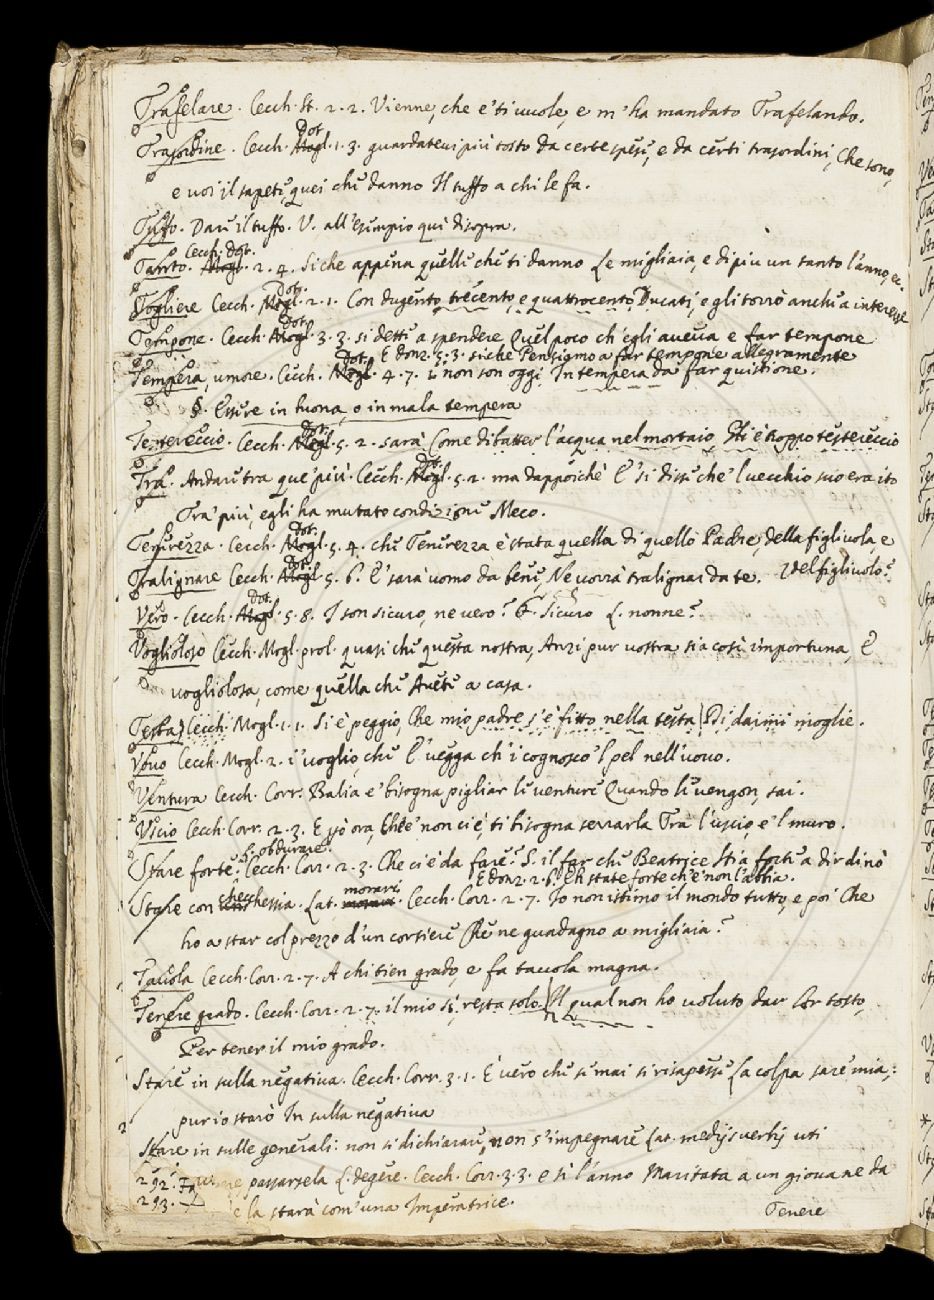 Trafelare. Cecch. St. 2. 2. Vienne, che e' ti vuole, e m'ha mandato Trafelando.
Dot.
Trasordine. Cecch. Mogl. 1. 3. guardatevi più tosto da certe spese, e da certi trasordini, Che sono,
e voi il sapete, quei che danno Il tuffo a chi le fa.
Tuffo. Dare il tuffo. V. all'esempio qui di sopra.
Cecch. Dot.
Tanto. Mogl. 2. 4. Siche appena quelle che ti danno Le migliaia, e di piu un tanto l'anno, ec.
Dot.
Togliere Cecch. Mogl. 2. 1. Con dugento trecento, e quattrocento Ducati, e gli torrò anche a interesse
Dot.
Tempone. Cecch. Mogl. 3. 3. si dette a spendere Quel poco ch'egli aveva e far tempone
Dot. E Donz. 5. 3. siche Pensiamo a far tempone allegramente
Tempera, umore. Cecch. Mogl. 4. 7. i' non son oggi In tempera da far quistione.
§. Essere in buona, o in mala tempera
Dot.
Testereccio. Cecch. Mogl. 5. 2. sarà Come dibatter l'acqua nel mortaio, è troppo testereccio
Dot.
Tra. Andare tra que' più. Cecch. Mogl. 5. 2. ma dappoichè E' si disse che 'l vecchio suo era ito
Tra' più, egli ha mutato condizione Meco.
Dot.
Tenerezza. Cecch. Mogl. 5. 4. che Tenerezza è stata quella di quello Padre, della figliuola, e
Dot.
Tralignare Cecch. Mogl. 5. 6. E' sarà uomo da bene, Ne vorrà tralignar da te. del figliuolo?
Dot.
Vero. Cecch. Mogl. 5. 8. I son sicuro, ne vero? Sicuro L. nonne?
Voglioloso Cecch. Mogl. prol. quasi che questa nostra, Anzi pur vostra sia così importuna, E
vogliolosa, come quella che Avete a casa.
Testa Cecch. Mogl. 1. 1. Si è peggio, Che mio padre s'è fitto nella testa Di darmi moglie.
Vovo Cecch. Mogl. 2. i' voglio, che E' vegga ch'i' cognosco 'l pel nell'uovo.
Ventura Cecch. Corr. Balia e' bisogna pigliar le venture Quando le vengon, sai.
Uscio Cecch. Corr. 2. 3. E però ora, Che e' non ci è, ti bisogna serrarla Tra l'uscio, e 'l muro.
L. obdurare.
Stare forte. Cecch. Corr. 2. 3. Che ci è da fare? S. il far che Beatrice Stia forte a dir di nò
E Donz. 2. 6. Eh state forte ch'e' non l'abbia.
checchessia morari
Stare con Lat. Cecch. Corr. 2. 7. Io non istimo il mondo tutto, e poi Che
ho a star col prezzo d'un corsiere Che ne guadagno a migliaia?
Tavola Cecch. Corr. 2. 7. A chi tien grado, e fa tavola magna.
Tenere grado. Cecch. Corr. 2. 7. il mio si resta solo Il qual non ho voluto dar tosto,
Per tener il mio grado.
Stare in sulla negativa. Cecch. Corr. 3. 1. E' vero che se mai si risapesse La colpa sare' mia,:
pur io starò In sulla negativa
Stare in sulle generali. non si dichiarare, non s'impegnare Lat. medijs verbij uti
292. passarsela L. degere. Cecch. Corr. 3. 3. e se l'anno Maritata a un giovane da
293. e la starà com'una Imperatrice.
Tenere